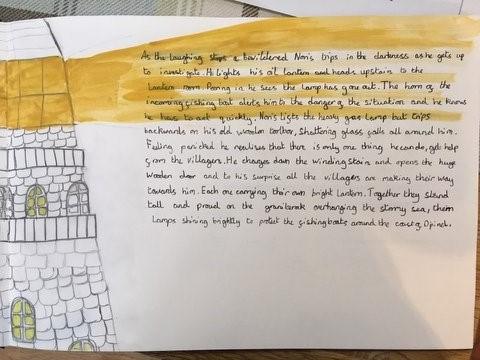 As the laughing stops a bewildered Noris trips in the darkness as he gets up
to investigate. He lights his oil lantern and heads upstairs to the
Lantern room. Peering in he sees the lamp has gone out. The horn of the
incoming fishing boat alerts him to the danger of the situation and he knows
he has to act quickly. Noris lifts the heavy gas lamp but trips
backwards on his old wooden toolbox, shattering glass falls all around him.
Feeling panicked he realises that there is only one thing he can do, get help
from the villagers. He charges down the winding stairs and opens the huge
wooden door and to his surprise all the villagers are making their way
towards him. Each one carrying their own bright lantern. Together they stand
tall and proud on the granite rock overhanging the stormy sea, their
Lamps shining brightly to protect the fishing boats around the coast of